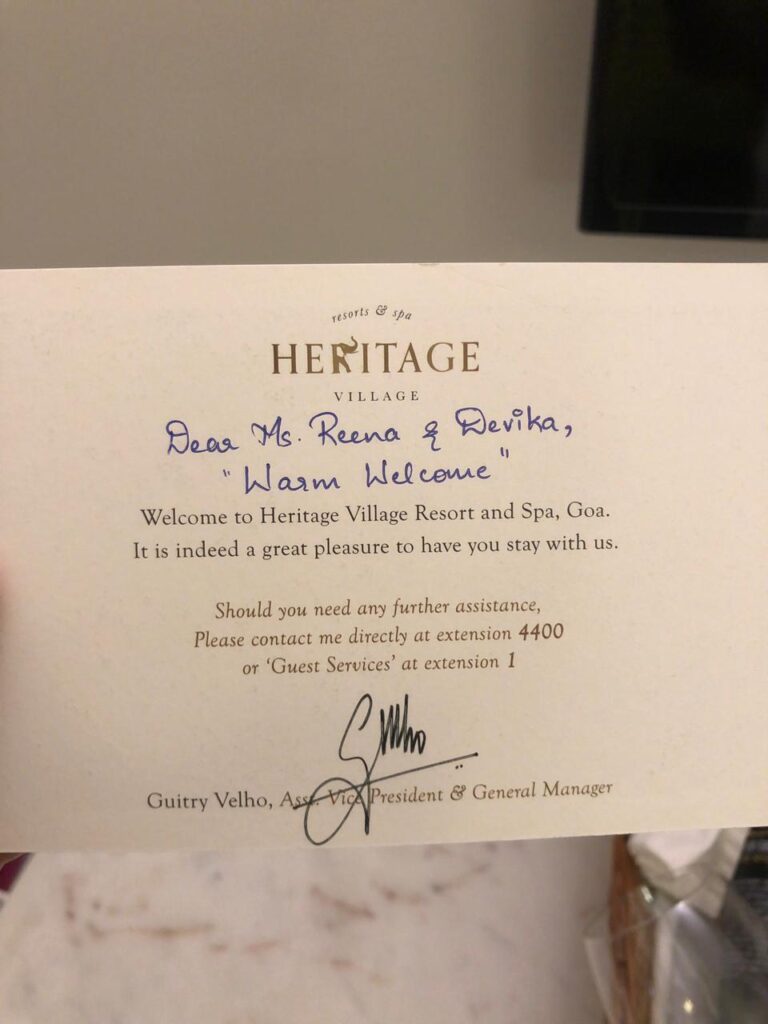 resorts & spa
HERITAGE
VILLAGE
Dear Ms. Reena & Devika,
"Warm Welcome"
Welcome to Heritage Village Resort and Spa, Goa.
It is indeed a great pleasure to have you stay with us.
Should you need any further assistance,
Please contact me directly at extension 4400
or 'Guest Services' at extension 1
Guitry Velho, Asst. Vice President & General Manager